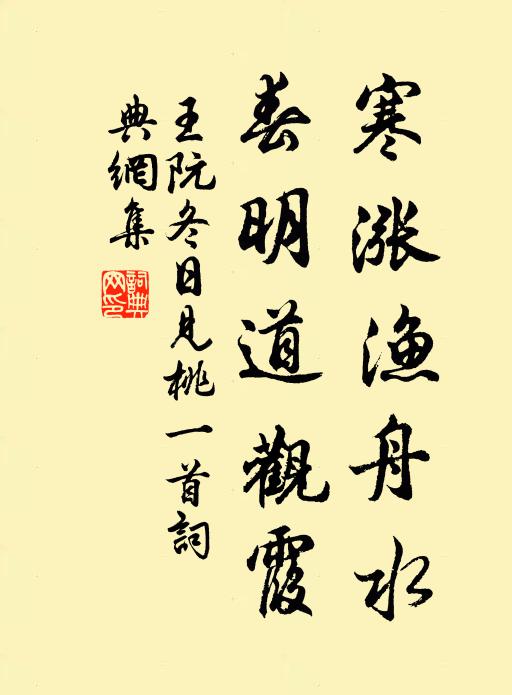 寒漲漁舟水
春明道觀霞
王阮冬日見桃一首詞
典網集
詞典網印